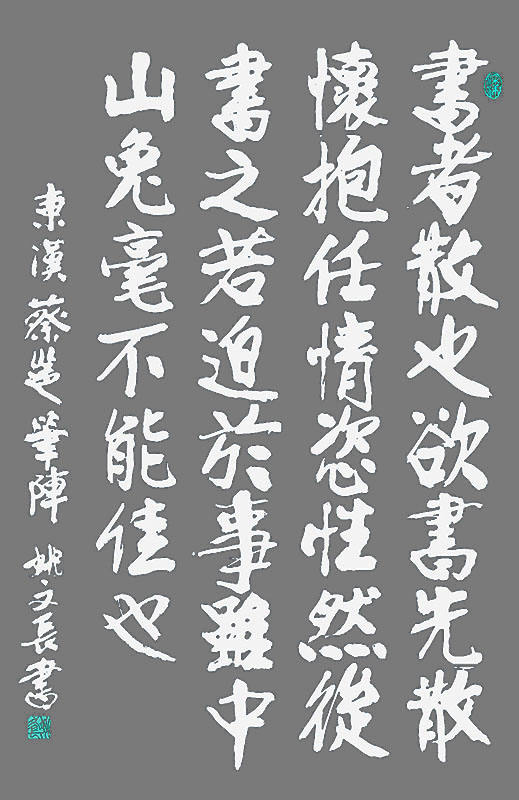 書者散也欲書先散
懷抱任情恣性然從
書之若迫於事雖中
山兔毫不能佳也
東漢蔡邕筆陣 姚文長書